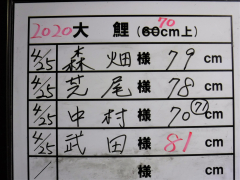 2020大鯉(60 70cm上)
4/25 森畑様 79cm
4/25 芫尾様 78cm
4/25 中村様 70(71)cm
4/25 武田様 81cm
様 cm